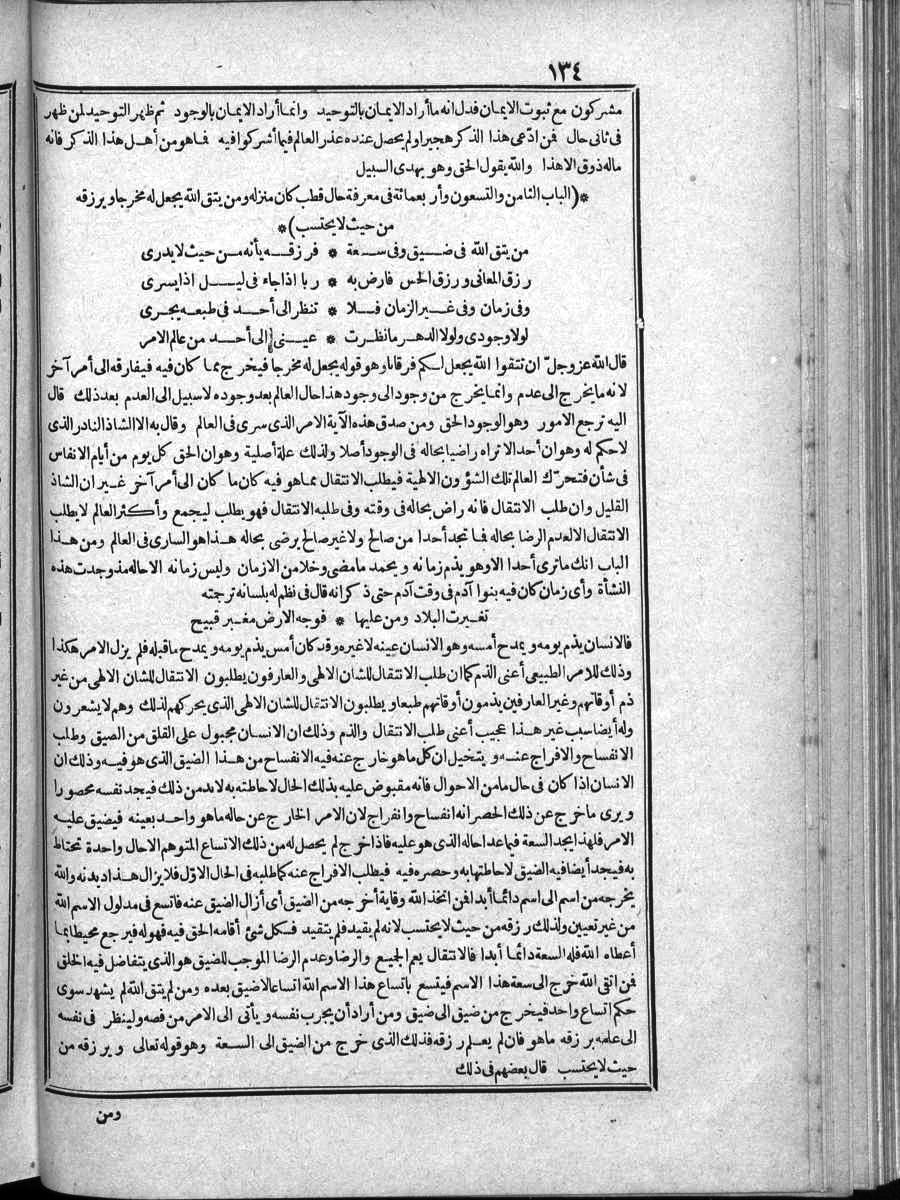 ١٣٤
مشركون مع ثبوت الايمان فدل انه ما أراد الايمان بالتوحيد وانما أراد الايمان بالوجود ثم ظهر التوحيد لمن ظهر
فى ثانى حال فمن ادّعى هذا الذكر هجيرا ولم يحصل عنده عذر العالم فيما أشركوا فيه فما هو من أهل هذا الذكر فانه
ماله ذوق الا هذا والله يقول الحق وهو يهدى السبيل
*(الباب الثامن والتسعون وأربعمائة فى معرفة حال قطب كان منزله ومن يتق الله يجعل له مخرجا ويرزقه
من حيث لا يحتسب)*
من يتق الله فى ضيق وفى سعة * فرزقه يأته من حيث لا يدرى
رزق المعانى ورزق الحس فارض به * ربا اذا جاء فى ليل اذا يسرى
وفى زمان وفى غير الزمان فلا * تنظر الى أحد فى طبعه يجرى
لولا وجودى ولولا الدهر ما نظرت * عينى الى أحد من عالم الامر
قال الله عز وجلّ ان تتقوا الله يجعل لكم فرقانا وهو قوله يجعل له مخرجا فيخرج مما كان فيه فيفارقه الى أمر آخر
لانه ما يخرج الى عدم وانما يخرج من وجود الى وجود هذا حال العالم بعد وجوده لا سبيل الى العدم بعد ذلك قال
اليه ترجع الامور وهو الوجود الحق ومن صدق هذه الآية الامر الذى سرى فى العالم وقال به الا الشاذ النادر الذى
لا حكم له وهو ان أحدا لا تراه راضيا بحاله فى الوجود أصلا ولذلك علة أصلية وهو ان الحق كل يوم من أيام الانفاس
فى شأن فتحرّك العالم تلك الشؤون الالهية فيطلب الانتقال مما هو فيه كان ما كان الى أمر آخر غير ان الشاذ
القليل وان طلب الانتقال فانه راض بحاله فى وقته وفى طلبه الانتقال فهو يطلب ليجمع وأكثر العالم لا يطلب
الانتقال الا لعدم الرضا بحاله فما تجد أحدا من صالح ولا غير صالح يرضى بحاله هذا هو السارى فى العالم ومن هذا
الباب انك ما ترى أحدا الا وهو يذم زمانه ويحمد ما مضى وخلا من الازمان وليس زمانه الا حاله مذ وجدت هذه
النشأة وأى زمان كان فيه بنوا آدم فى وقت آدم حتى ذكر انه قال فى نظم له بلسانه ترجمته
تغيرت البلاد ومن عليها * فوجه الارض مغبر قبيح
فالانسان يذم يومه ويمدح أمسه وهو الانسان عينه لا غيره وقد كان أمس يذم يومه ويمدح ما قبله فلم يزل الامر هكذا
وذلك للامر الطبيعى أعنى الذم كما ان طلب الانتقال للشان الالهى والعارفون يطلبون الانتقال للشان الالهى من غير
ذم أوقاتهم وغير العارفين يذمون أوقاتهم طبعا ويطلبون الانتقال للشان الالهى الذى يحركهم لذلك وهم لا يشعرون
وله أيضا سبب غير هذا عجيب أعنى طلب الانتقال والذم وذلك ان الانسان مجبول على القلق من الضيق وطلب
الانفساح والافراج عنه ويتخيل ان كل ما هو خارج عنه فيه الانفساح من هذا الضيق الذى هو فيه وذلك ان
الانسان اذا كان فى حال ما من الاحوال فانه مقبوض عليه بذلك الحال لاحاطته به لا بد من ذلك فيجد نفسه محصورا
ويرى ما خرج عن ذلك الحصر انه انفساح وانفراج لان الامر الخارج عن حاله ما هو واحد بعينه فيضيق عليه
الامر فلهذا يجد السعة فيما عدا حاله الذى هو عليه فاذا خرج لم يحصل له من ذلك الاتساع المتوهم الا حال واحدة تحتاط
به فيجد أيضا فيه الضيق لاحاطتها به وحصره فيه فيطلب الافراج عنه كما طلبه فى الحال الاوّل فلا يزال هذا ديدنه والله
يخرجه من اسم الى اسم دائما أبدا فمن اتخذ الله وقاية أخرجه من الضيق أى أزال الضيق عنه فاتسع فى مدلول الاسم الله
من غير تعيين ولذلك رزقه من حيث لا يحتسب لانه لم يقيد فلم يتقيد فكل شئ أقامه الحق فيه فهو له فيرجع محيطا بما
أعطاه الله فله السعة دائما أبدا فالانتقال يعم الجميع والرضا وعدم الرضا الموجب للضيق هو الذى يتفاضل فيه الخلق
فمن اتقى الله خرج الى سعة هذا الاسم فيتسع باتساع هذا الاسم الله اتساعا لا ضيق بعده ومن لم يتق الله لم يشهد سوى
حكم اتساع واحد فيخرج من ضيق الى ضيق ومن أراد أن يجرب نفسه ويأتى الى الامر من فصه ولينظر فى نفسه
الى علمه برزقه ما هو فان لم يعلم رزقه فذلك الذى خرج من الضيق الى السعة وهو قوله تعالى ويرزقه من
حيث لا يحتسب قال بعضهم فى ذلك
ومن